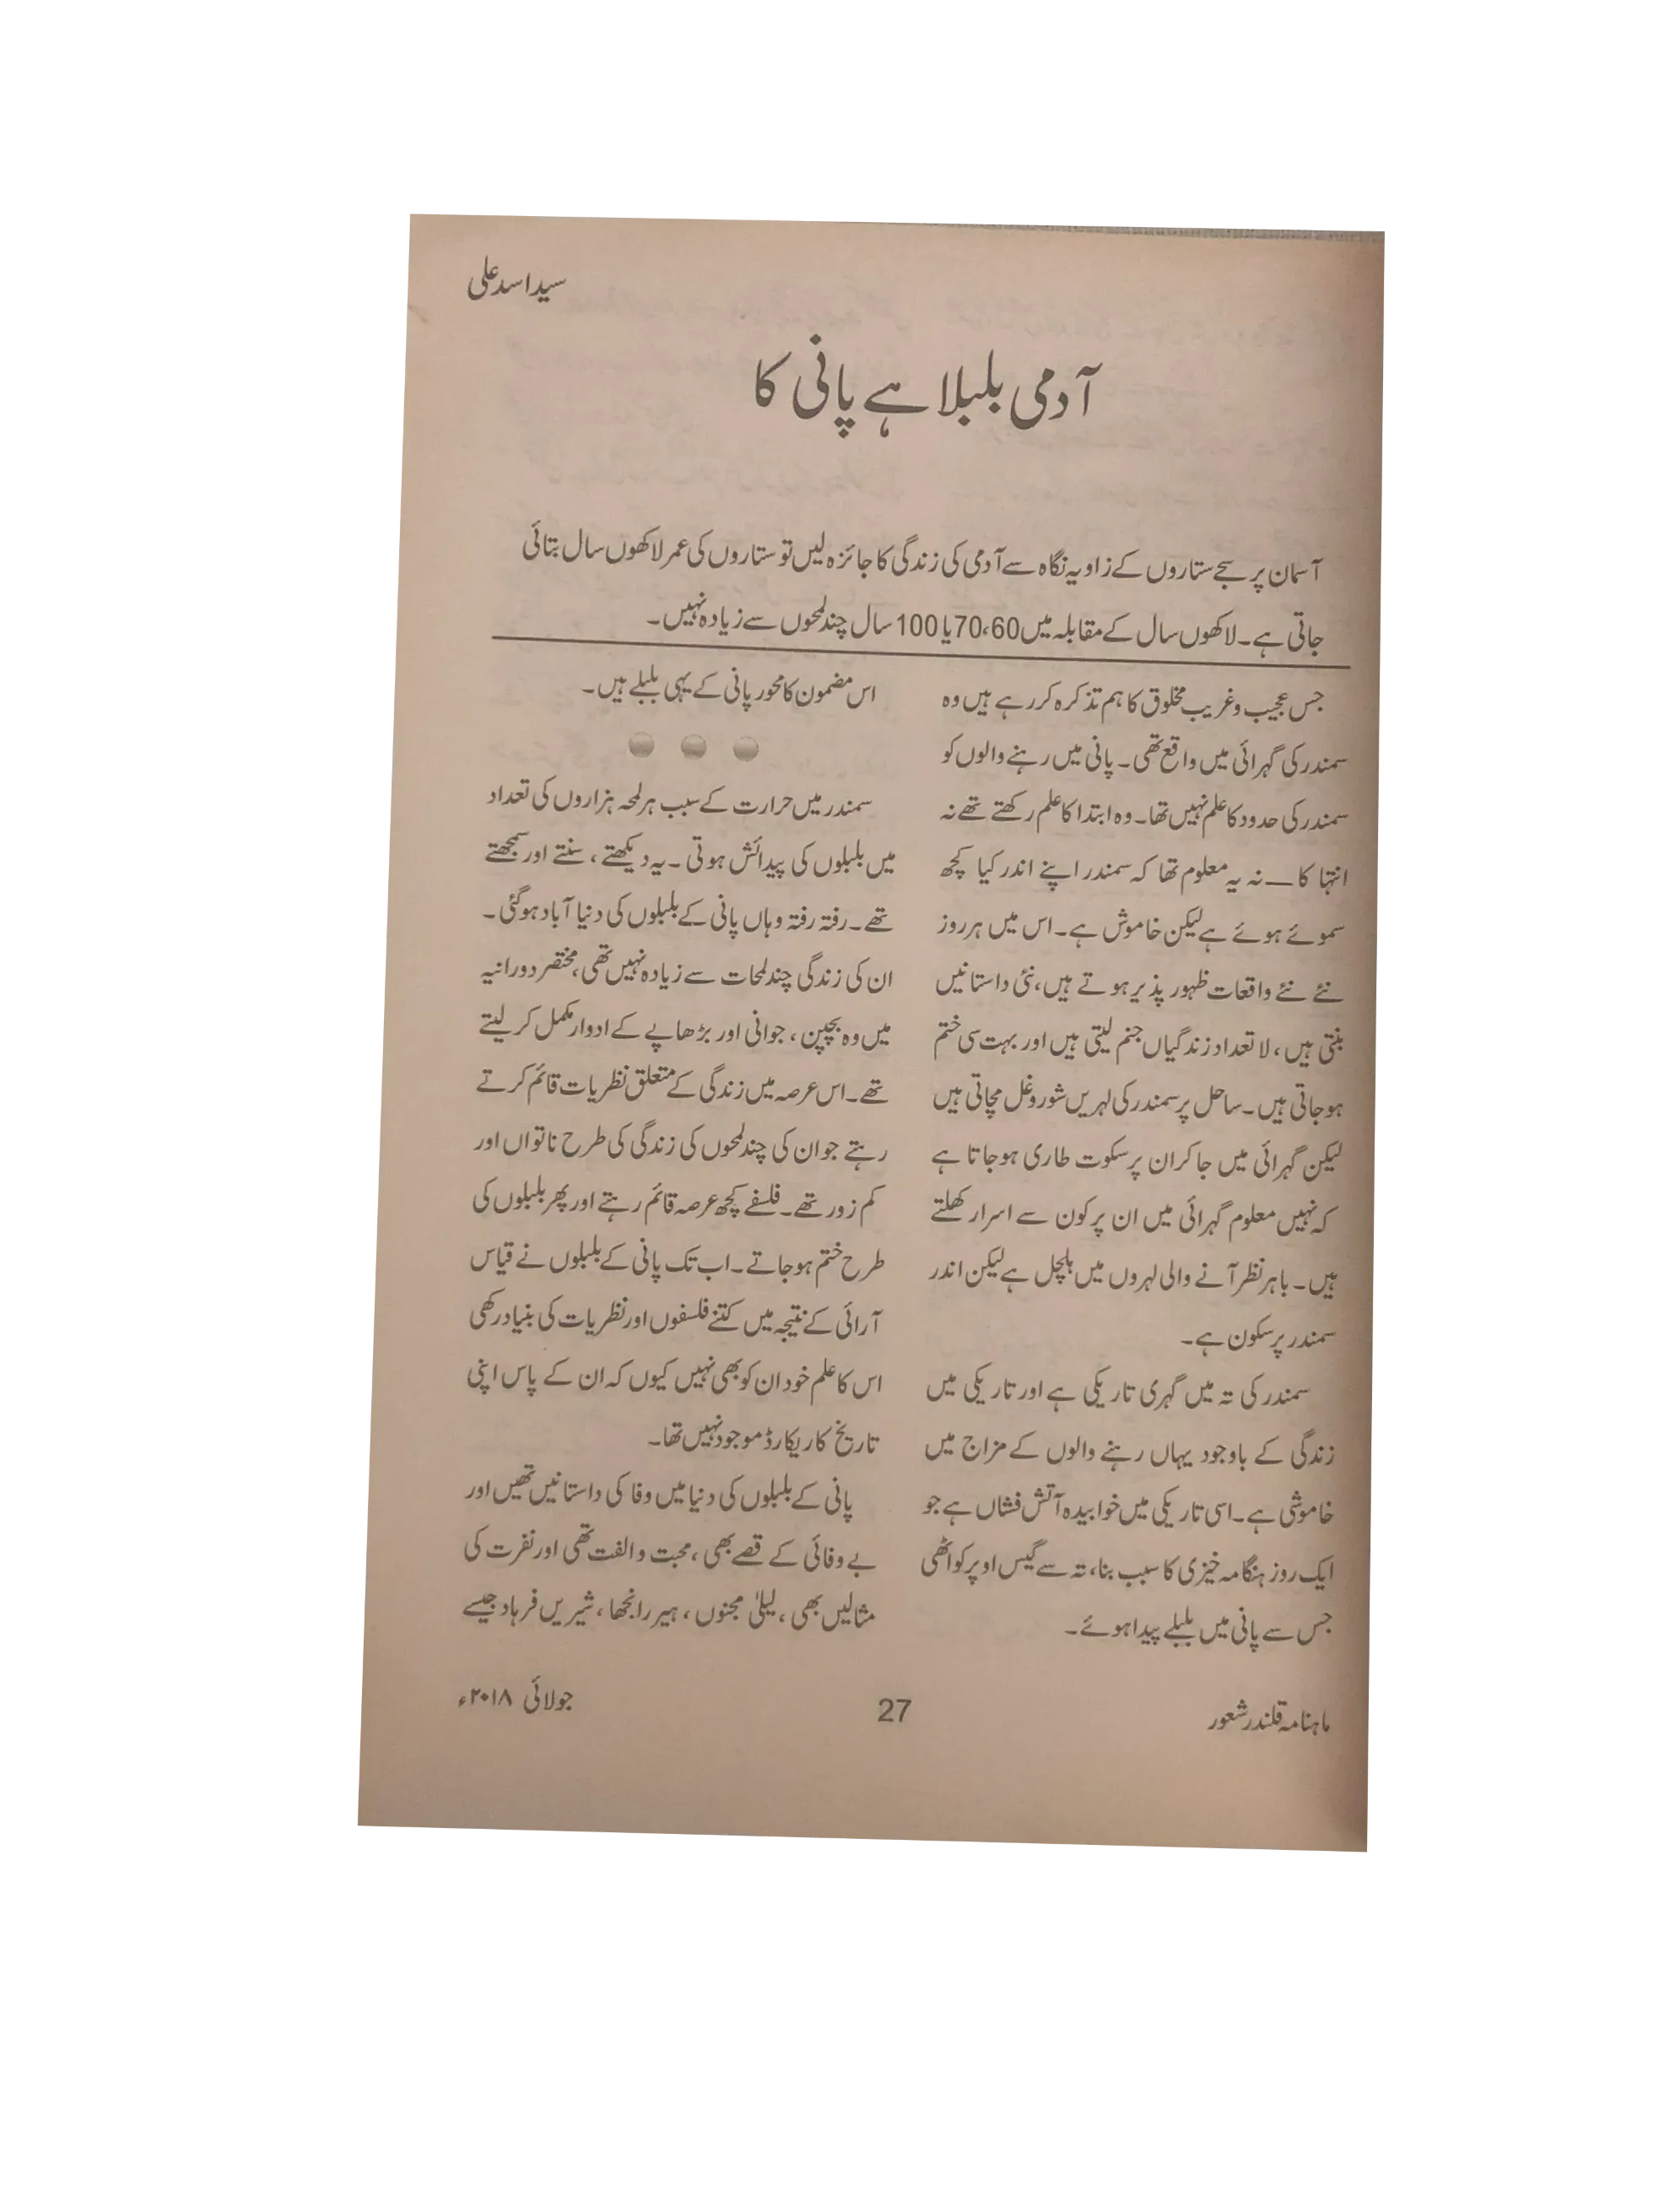 سید اسد علی
آدمی بلبلا ہے پانی کا
آسمان پر سجے ستاروں کے زاویہ نگاہ سے آدمی کی زندگی کا جائزہ لیں تو ستاروں کی عمر لاکھوں سال بتائی
جاتی ہے۔ لاکھوں سال کے مقابلہ میں 60، 70 یا 100 سال چند لمحوں سے زیادہ نہیں۔
جس عجیب و غریب مخلوق کا ہم تذکرہ کر رہے ہیں وہ
سمندر کی گہرائی میں واقع تھی۔ پانی میں رہنے والوں کو
سمندر کی حدود کا علم نہیں تھا۔ وہ ابتدا کا علم رکھتے تھے نہ
انتہا کا — نہ یہ معلوم تھا کہ سمندر اپنے اندر کیا کچھ
سموئے ہوئے ہے لیکن خاموش ہے۔ اس میں ہر روز
نئے نئے واقعات ظہور پذیر ہوتے ہیں، نئی داستانیں
بنتی ہیں، لاتعداد زندگیاں جنم لیتی ہیں اور بہت سی ختم
ہو جاتی ہیں۔ ساحل پر سمندر کی لہریں شور و غل مچاتی ہیں
لیکن گہرائی میں جا کر ان پر سکوت طاری ہو جاتا ہے
کہ نہیں معلوم گہرائی میں ان پر کون سے اسرار کھلتے
ہیں۔ باہر نظر آنے والی لہروں میں ہلچل ہے لیکن اندر
سمندر پرسکون ہے۔
سمندر کی تہ میں گہری تاریکی ہے اور تاریکی میں
زندگی کے باوجود یہاں رہنے والوں کے مزاج میں
خاموشی ہے۔ اسی تاریکی میں خوابیدہ آتش فشاں ہے جو
ایک روز ہنگامہ خیزی کا سبب بنا، تہ سے گیس اوپر کو اٹھی
جس سے پانی میں بلبلے پیدا ہوئے۔
اس مضمون کا محور پانی کے یہی بلبلے ہیں۔
سمندر میں حرارت کے سبب ہر لمحہ ہزاروں کی تعداد
میں بلبلوں کی پیدائش ہوتی۔ یہ دیکھتے، سنتے اور سمجھتے
تھے۔ رفتہ رفتہ وہاں پانی کے بلبلوں کی دنیا آباد ہو گئی۔
ان کی زندگی چند لمحات سے زیادہ نہیں تھی، مختصر دورانیہ
میں وہ بچپن، جوانی اور بڑھاپے کے ادوار مکمل کر لیتے
تھے۔ اس عرصہ میں زندگی کے متعلق نظریات قائم کرتے
رہتے جو ان کی چند لمحوں کی زندگی کی طرح ناتواں اور
کم زور تھے۔ فلسفے کچھ عرصہ قائم رہتے اور پھر بلبلوں کی
طرح ختم ہو جاتے۔ اب تک پانی کے بلبلوں نے قیاس
آرائی کے نتیجہ میں کتنے فلسفوں اور نظریات کی بنیاد رکھی
اس کا علم خود ان کو بھی نہیں کیوں کہ ان کے پاس اپنی
تاریخ کا ریکارڈ موجود نہیں تھا۔
پانی کے بلبلوں کی دنیا میں وفا کی داستانیں تھیں اور
بے وفائی کے قصے بھی، محبت و الفت تھی اور نفرت کی
مثالیں بھی، لیلیٰ مجنوں، ہیر رانجھا، شیریں فرہاد جیسے
ماہنامہ قلندر شعور
27
جولائی ۲۰۱۸ء